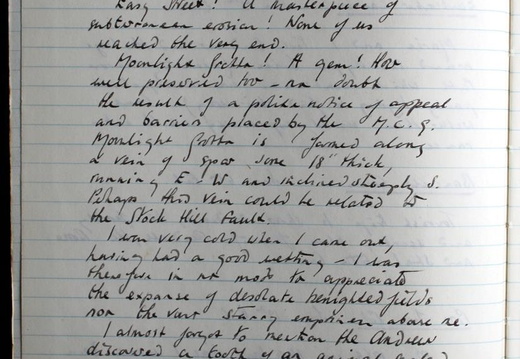 Easy Street! A masterpiece of
subterranean erosion! None of us
reached the very end.
Moonlight Grotto! A gem! How
well preserved too - no doubt
the result of a polite notice of appeal
and barrier placed by the M.C.G.
Moonlight Grotto is formed along
a vein of spar some 18" thick,
running E-W and inclined steeply S.
Perhaps this vein could be related to
the Stock Hill Fault.
I was very cold when I came out,
having had a good wetting - I was
therefore in no mode to appreciate
the expanse of desolate benighted fields
nor the vast starry empyrean above me.
I almost forgot to mention the Andrew
discovered a tooth of an animal